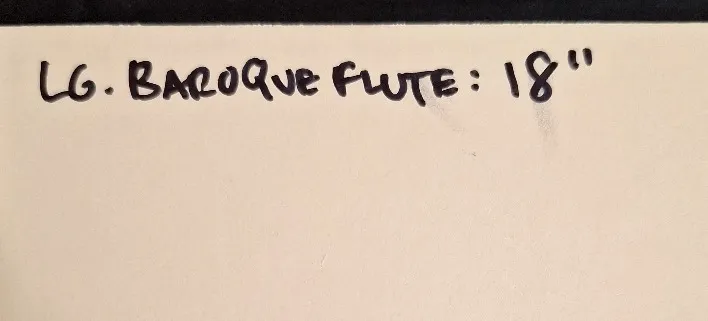 LG. BAROQUE FLUTE: 18"